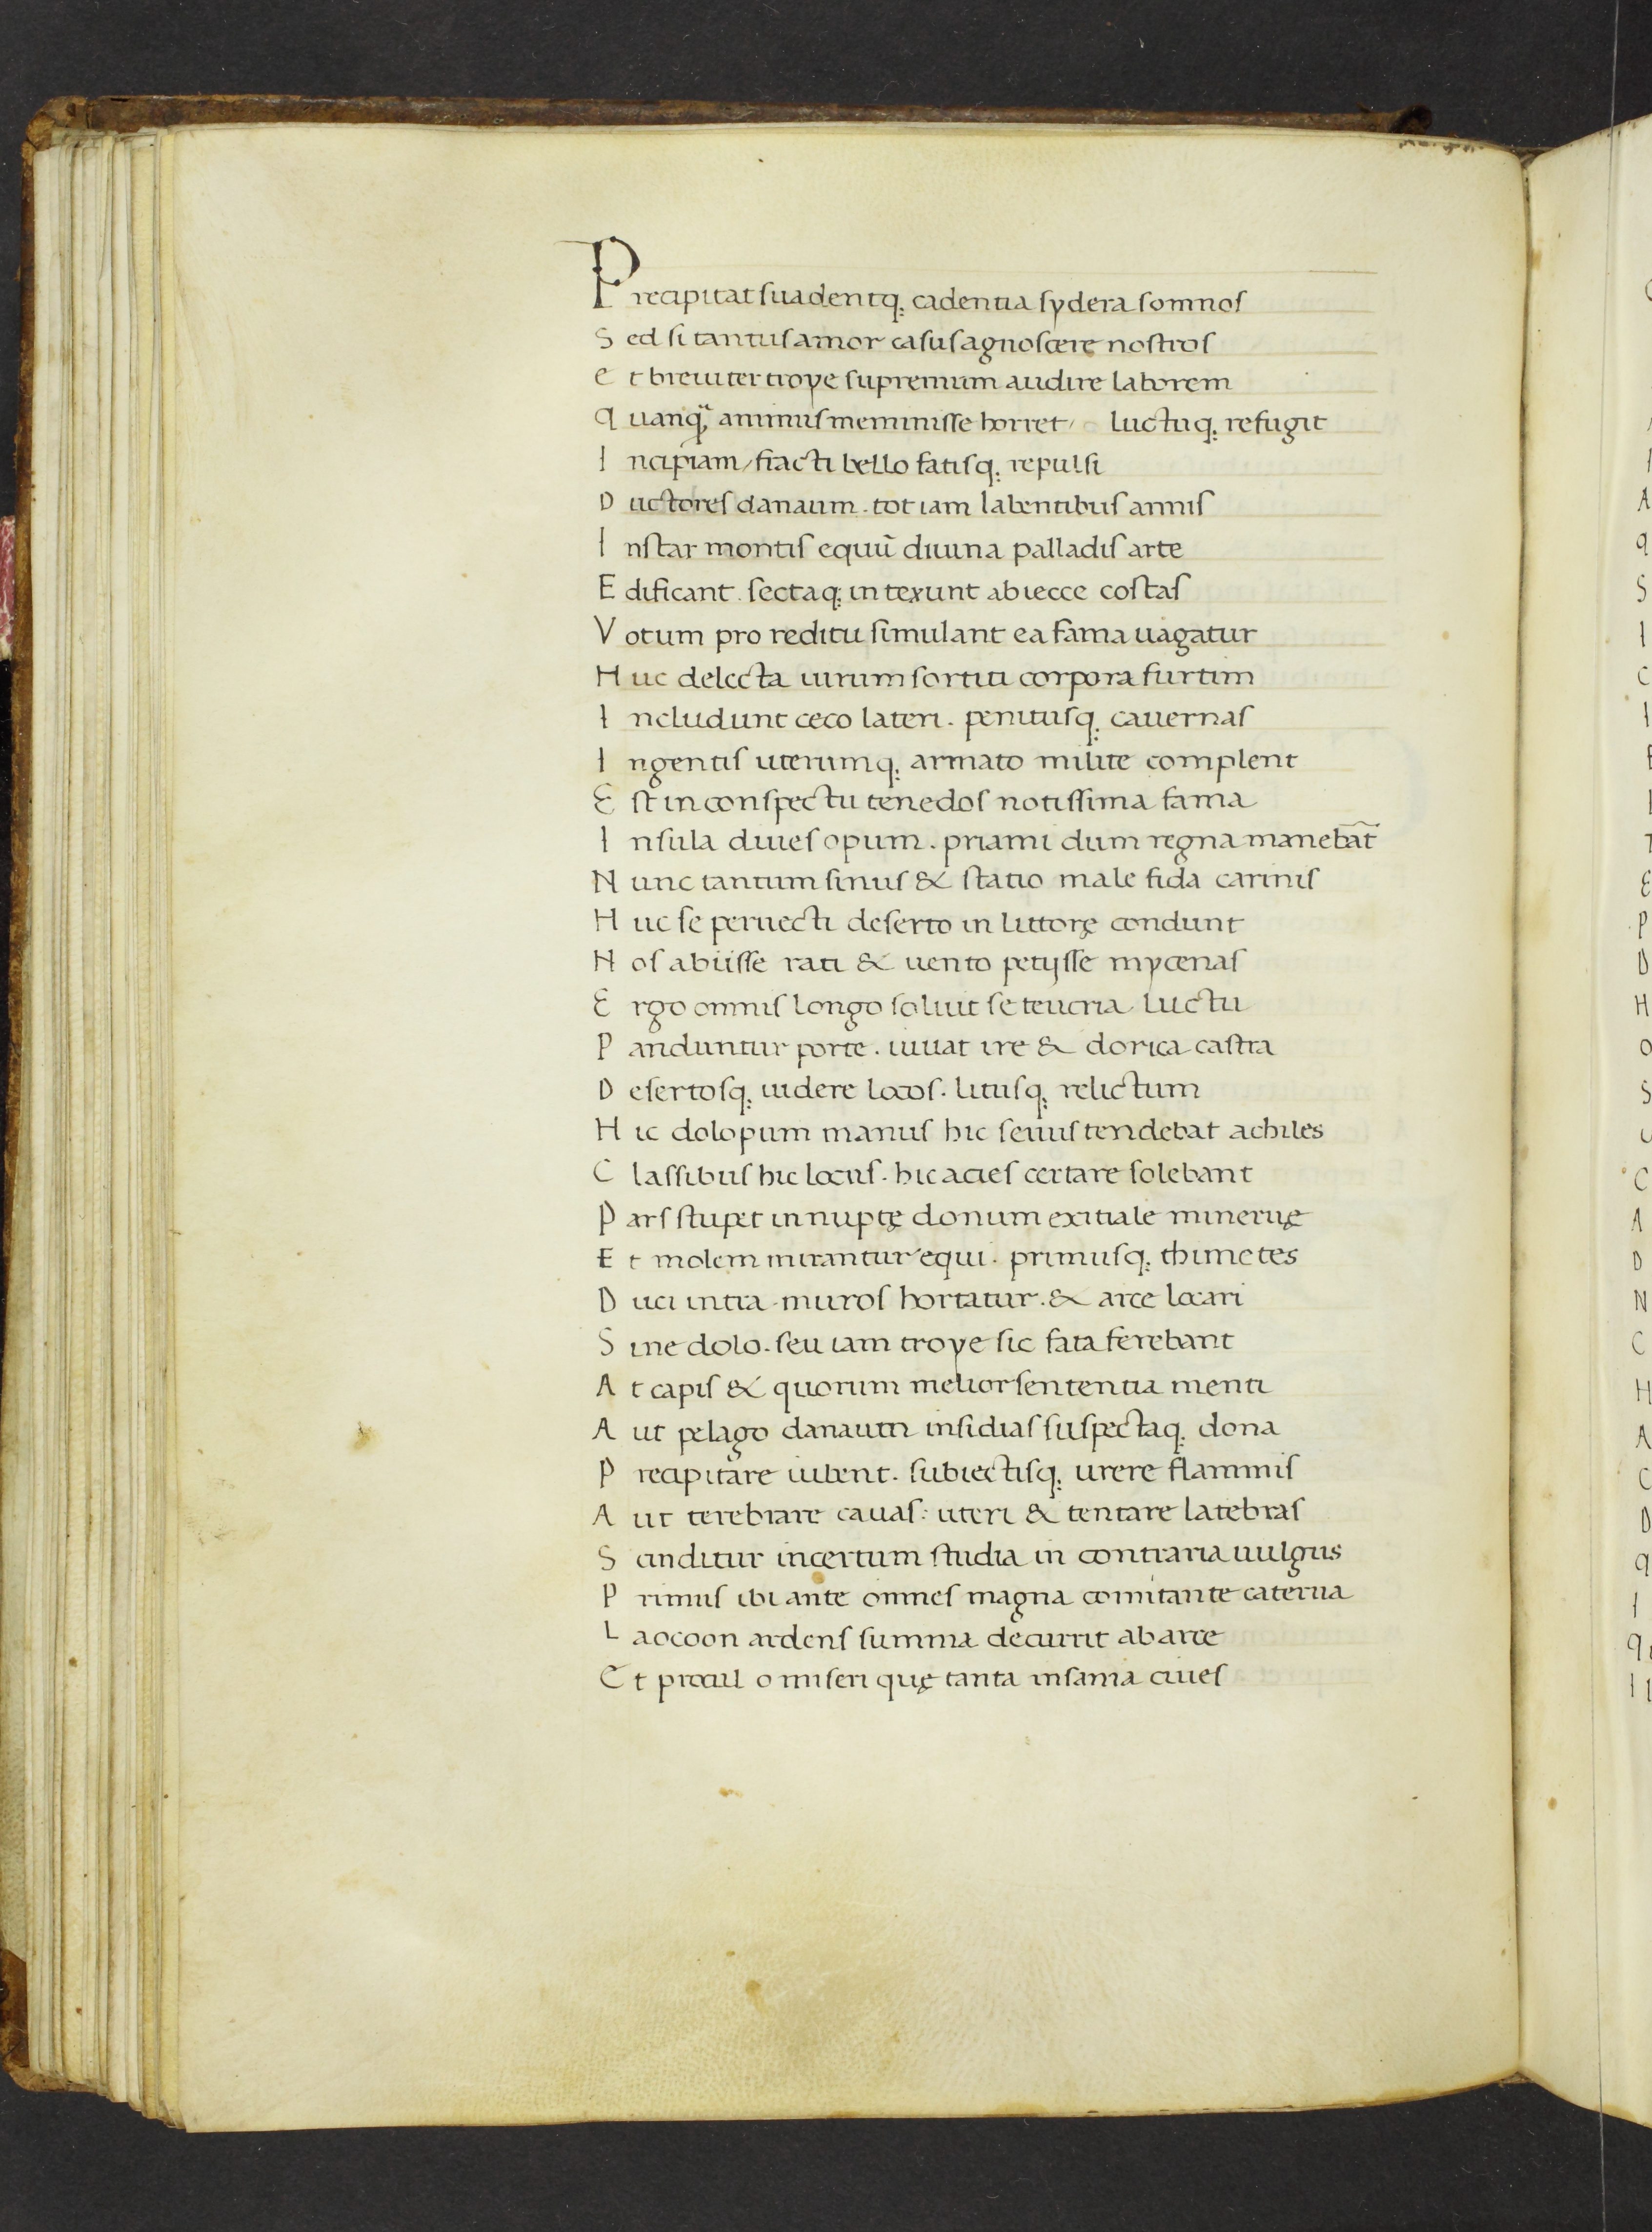 Precipitat suadentq; cadentia sydera somnos
Sed si tantus amor casus agnoscere nostros
et breuiter troye supremum audire laborem
quanq̃ animus meminisse horret / luctuq; refugit
Incipiam / fracti bello fatisq; repulsi
Ductores danaum . tot iam labentibus annis
Instar montis equũ diuina palladis arte
Edificant . sectaq; intexunt abiecce costas
Votum pro reditu simulant ea fama uagatur
Huc delecta uirum sortiti corpora furtim
Includunt ceco lateri . penitusq; cauernas
Ingentis uterumq; armato milite complent
Est in conspectu tenedos notissima fama
Insula diues opum . priami dum regna manebat
Nunc tantum sinus & statio male fida carinis
Huc se peruecti deserto in littorę condunt
Nos abiisse rati & uento petijsse mycenas
Ergo omnis longo soluit se teucria luctu
Panduntur porte . iuuat ire & dorica castra
Desertosq; uidere locos . litusq; relictum
Hic dolopum manus hic seuus tendebat achiles
Classibus hic locus . hic acies certare solebant
Pars stupet innuptę donum exitiale mineruę
Et molem mirantur equi . primusq; thimetes
Duci intra muros hortatur . & arce locari
Sine dolo . seu iam troye sic fata ferebant
At capis & quorum melior sententia menti
Aut pelago danaum insidias suspectaq; dona
Precipitare iubent . subiectisq; urere flammis
Aut terebrare cauas : uteri & tentare latebras
Scinditur incertum studia in contraria uulgus
Primus ibi ante omnes magna comitante caterua
Laocoon ardens summa decurrit ab arce
Et procul o miseri quę tanta insania ciues